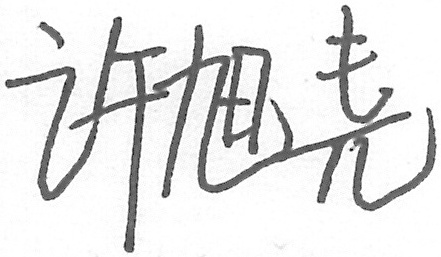 许旭尧